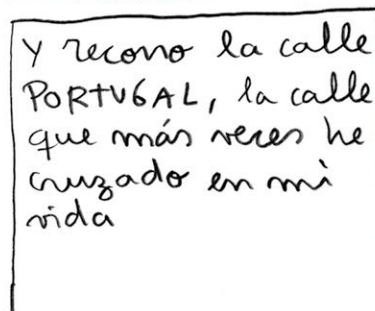 Y recorro la calle
PORTUGAL, la calle
que más veces he
cruzado en mi
vida